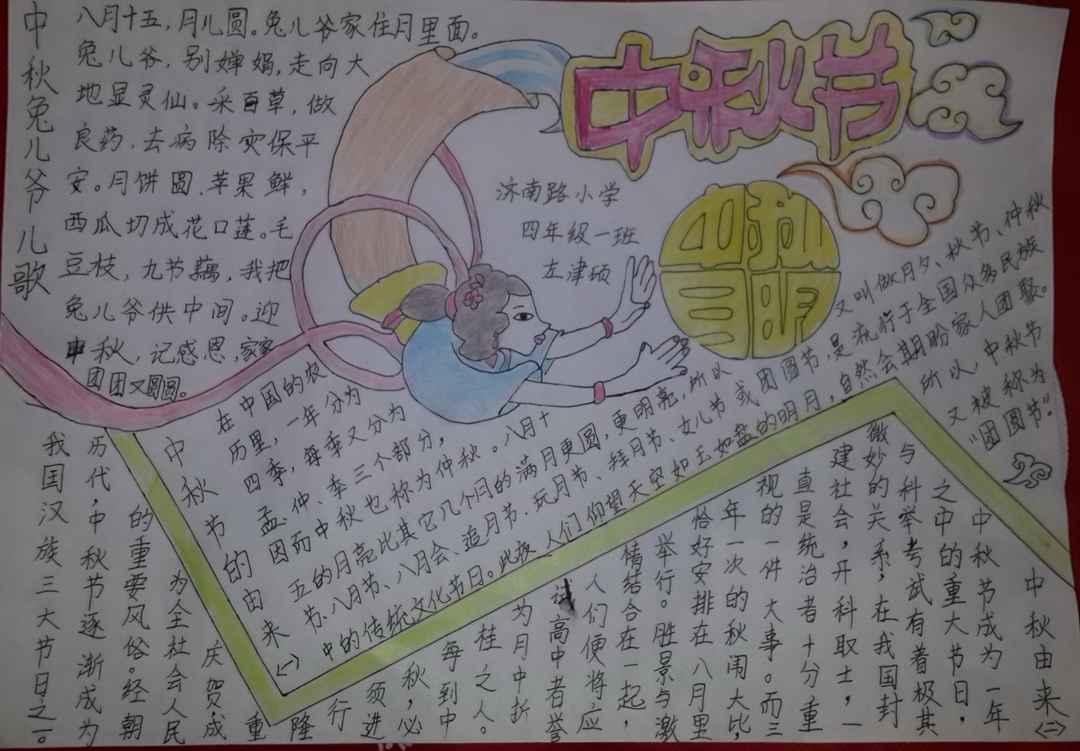 中秋节
中秋兔儿爷儿歌
八月十五，月儿圆。兔儿爷家住月里面。
兔儿爷，别婵娟，走向大
地显灵仙。采百草，做
良药，去病除灾保平
安。月饼圆，苹果鲜，
西瓜切成花口莲。毛
豆枝，九节藕，我把
兔儿爷供中间。迎
中秋，记感恩，家家
团团又圆圆。
济南路小学
四年级一班
左津硕
中秋节的由来(一)
在中国的农
历里，一年分为
四季，每季又分为
孟、仲、季三个部分，
因而中秋也称为仲秋。八月十
五的月亮比其它几个月的满月更圆，更明亮，所以又叫做月夕、秋节、仲秋
节、八月节、八月会、追月节、玩月节、拜月节、女儿节或团圆节，是流行于全国众多民族
中的传统文化节日。此夜，人们仰望天空如玉如盘的明月，自然会期盼家人团聚。
所以，中秋节
又被称为
“团圆节”。
中秋由来(二)
中秋节成为一年
之中的重大节日，
与科举考试有着极其
微妙的关系，在我国封
建社会，开科取士，一
直是统治者十分重
视的一件大事。而三
年一次的秋闱大比，
恰好安排在八月里
举行。胜景与激
情结合在一起，
人们便将应
试高中者誉
为月中折
桂之人。
每到中
秋，必
须进
行
隆
重
庆贺，成
为全社会人民
的重要风俗。经朝
历代，中秋节逐渐成为
我国汉族三大节日之一。